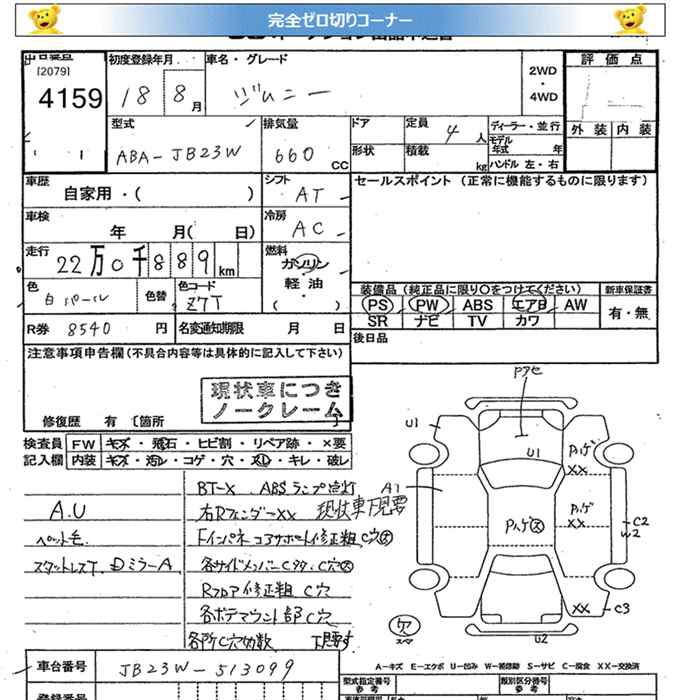 完全ゼロ切りコーナー
[2079]
4159
初度登録年月
18 8月
車名・グレード
ジムニー
2WD
・
4WD
評価点
外装 内装
型式
ABA-JB23W
排気量
660 CC
ドア
定員 4人
ディーラー・並行
モデル年式 年
形状
積載 kg
ハンドル 左・右
車歴
自家用・( )
シフト
AT
セールスポイント (正常に機能するものに限ります)
車検
年 月( 日)
冷房
AC
走行
22万0千889km
燃料
ガソリン
軽油
( )
色
白パール
色替
色コード
Z7T
装備品 (純正品に限り〇をつけてください)
新車保証書
PS PW ABS エアB AW
SR ナビ TV カワ
有・無
R券 8540 円
名変通知期限 月 日
後日品
注意事項申告欄 (不具合内容等は具体的に記入して下さい)
現状車につき
ノークレーム
修復歴 有 〔箇所 〕
検査員
記入欄
FW キズ・飛石・ヒビ割・リペア跡・×要
内装 キズ・汚レ・コゲ・穴・スレ・キレ・破レ
BT-X ABSランプ点灯
A.U
右RフェンダーXX 現状車下見要
ペット毛
Fインパネコアサポート修正粗 C穴大
スタットレスT、DミラーA
各サイドメンバーCタタ、C穴大
Rフロア修正粗 C穴
各ボデマウント部 C穴
各所C穴多数 下見要す
Pアセ
U1
U1
ハゲ
XX
A1
ハゲ
XX
ハゲ大
C2
W2
XX
C3
穴
スマ
U2
A-キズ E-エクボ U-凹み W-補修跡 S-サビ C-腐食 XX-交換済
車台番号
JB23W-513099
登録番号
型式指定番号
参考
類別区分番号
参考